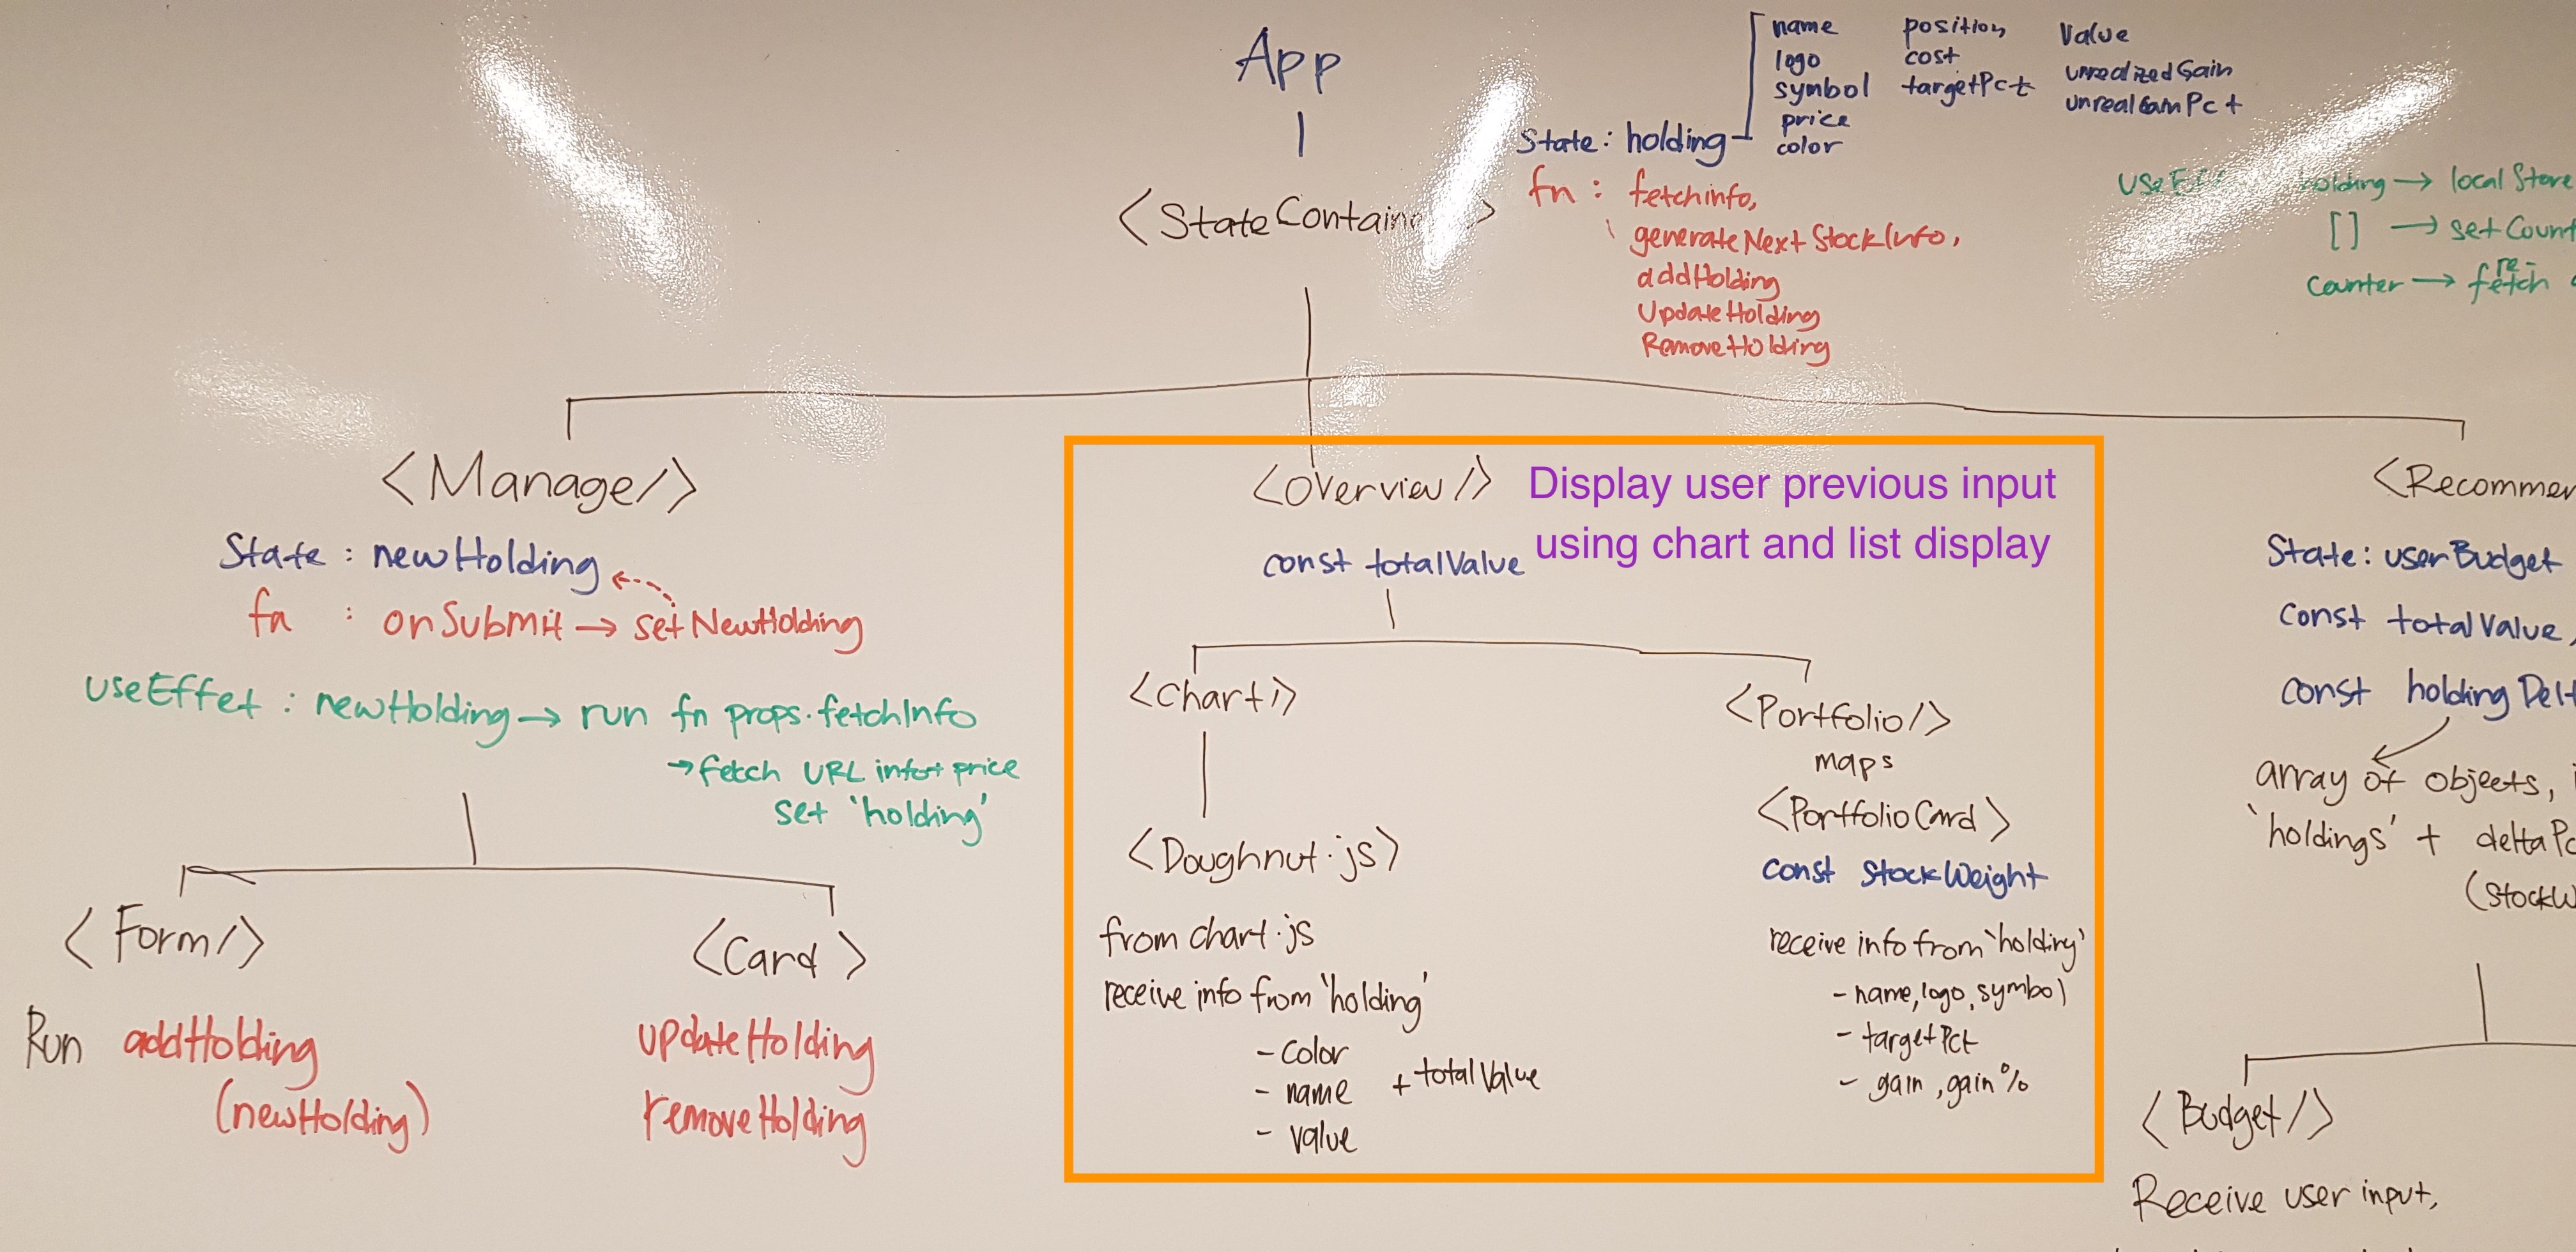 App
name position Value
logo cost unrealizedGain
symbol targetPct unrealGainPct
price
State: holding color
fn : fetchinfo,
generateNextStockInfo,
addHolding
UpdateHolding
RemoveHolding
holding → localStore
[] → setCount
counter → re-fetch
<StateContain >
<Manage/>
State : newHolding
fn : onSubmit → setNewHolding
useEffet : newHolding → run fn props.fetchInfo
→ fetch URL info+ price
set 'holding'
<Form/>
Run addHolding
(newHolding)
<Card >
updateHolding
removeHolding
<Overview/>
Display user previous input
using chart and list display
const totalValue
<Chart/>
<Doughnut.js>
from chart.js
receive info from 'holding'
- Color
- name + totalValue
- value
<Portfolio/>
maps
<PortfolioCard>
const StockWeight
receive info from 'holding'
- name, logo, symbol
- targetPct
- gain, gain%
<Recommen
State: userBudget
const totalValue,
const holdingDelt
array of objects,
'holdings' + deltaPc
(StockW
<Budget/>
Receive user input,